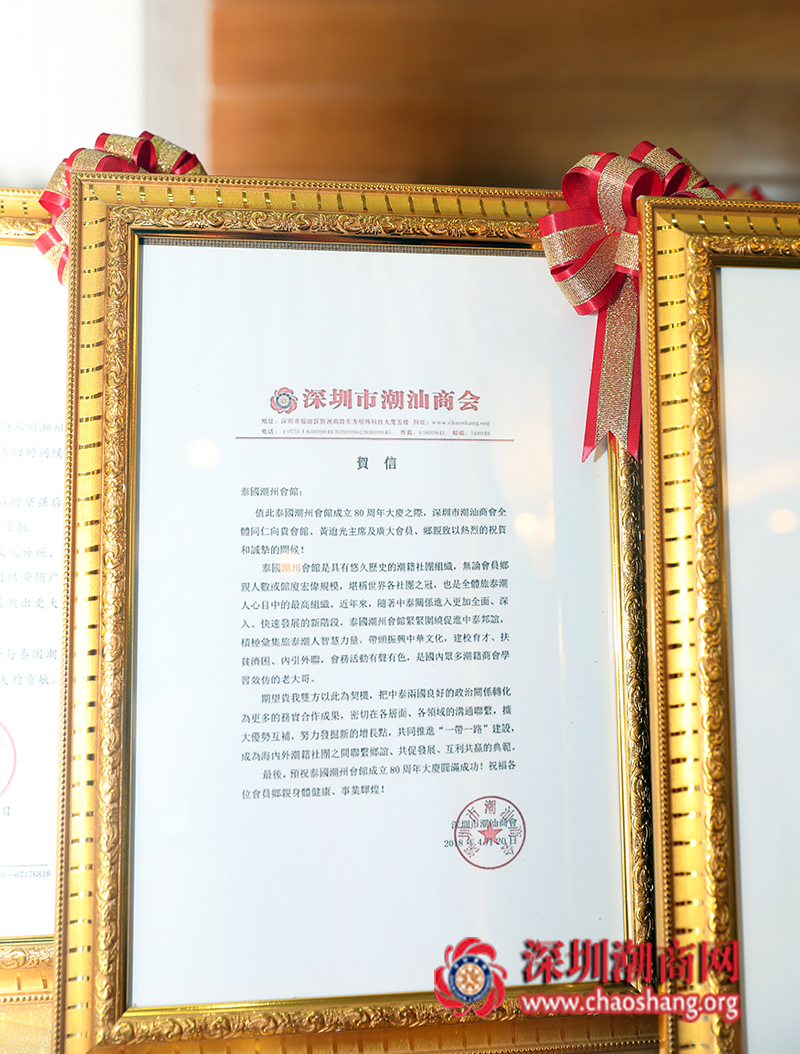 深圳市潮汕商会
地址：深圳市福田区新洲南路东方明珠科技大厦五楼 网址：www.chaoshang.org
賀 信
泰國潮州會館：
值此泰國潮州會館成立80周年大慶之際，深圳市潮汕商會全
體同仁向貴會館、黃迨光主席及廣大會員、鄉親致以熱烈的祝賀
和誠摯的問候！
泰國潮州會館是具有悠久歷史的潮籍社團組織，無論會員鄉
親人數或館廈宏偉規模，堪稱世界各社團之冠，也是全體旅泰潮
人心目中的最高組織。近年來，隨著中泰關係進入更加全面、深
入、快速發展的新階段，泰國潮州會館緊緊圍繞促進中泰邦誼，
積極彙集旅泰潮人智慧力量，帶頭振興中華文化，建校育才、扶
貧濟困、內引外聯，會務活動有聲有色，是國內眾多潮籍商會學
習效仿的老大哥。
期望貴我雙方以此為契機，把中泰兩國良好的政治關係轉化
為更多的務實合作成果，密切在各層面、各領域的溝通聯繫，擴
大優勢互補，努力發掘新的增長點，共同推進“一帶一路”建設，
成為海內外潮籍社團之間聯繫鄉誼、共促發展、互利共贏的典範。
最後，預祝泰國潮州會館成立80周年大慶圓滿成功！祝福各
位會員鄉親身體健康、事業輝煌！
深圳市潮汕商會
2018年4月20日
泰国潮
大的贡献。
日
67176818
深圳潮商网
www.chaoshang.org